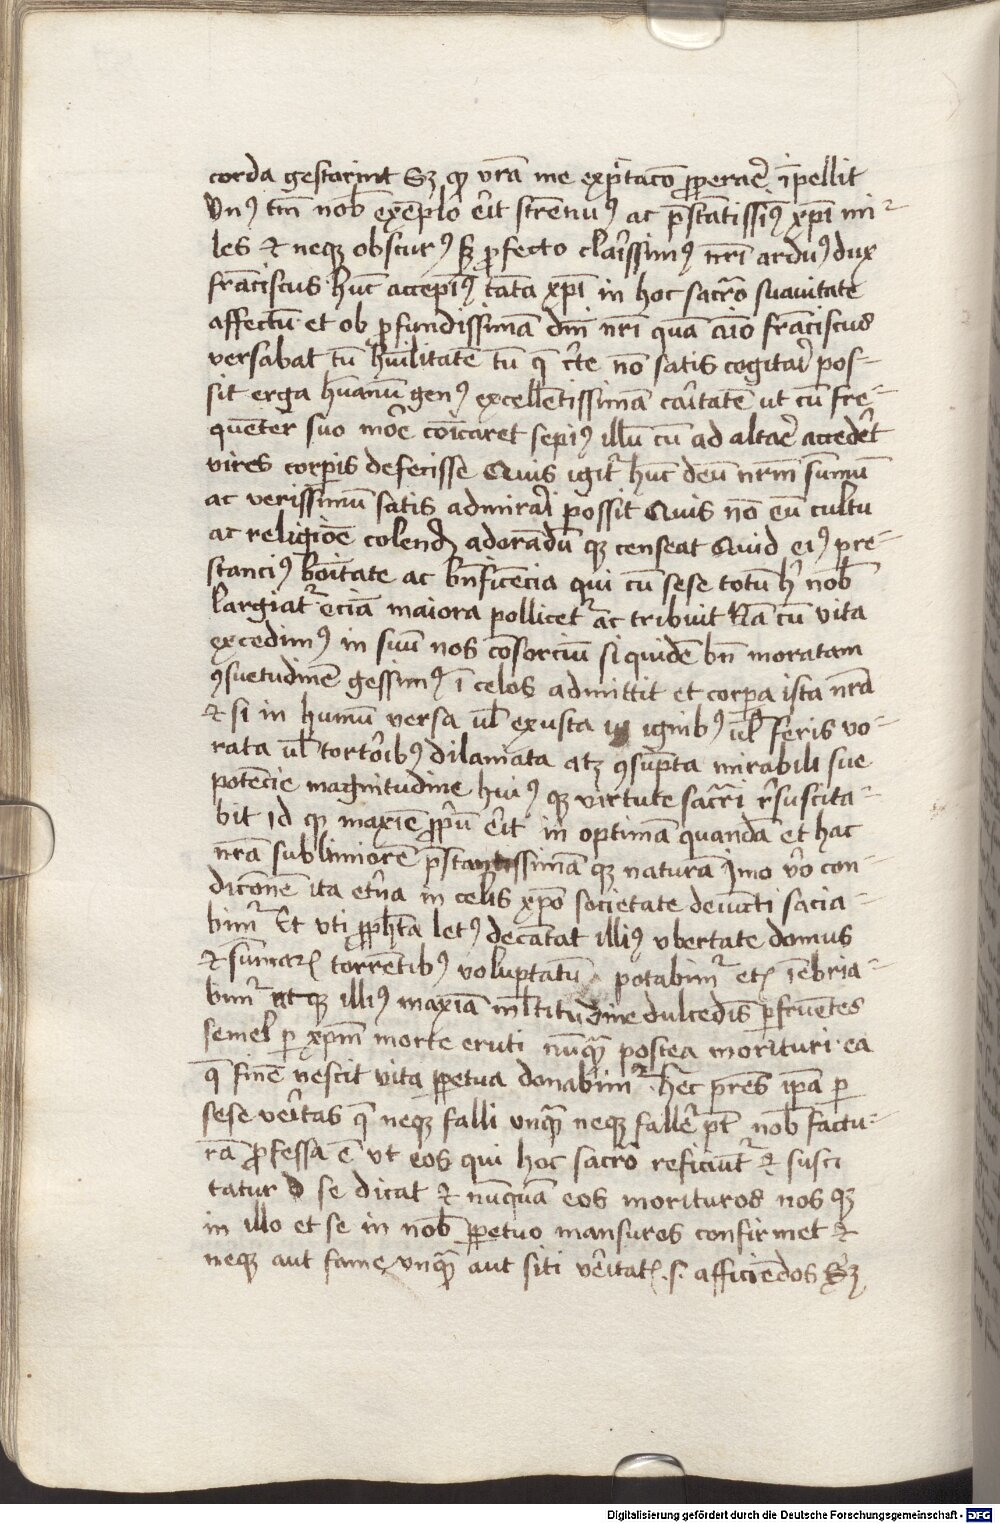 corda gestarint Sꝫ qꝫ vr̄a me exp̄tac̄o ꝓperar̄e īpellit
Vnꝰ tm̄ nob̄ exēplo er̄it strenuꝰ ac p̄stātissiꝰ xp̄i mi-
les ⁊ neqꝫ obscurꝰ sꝫ ꝓfecto clar̄issimꝰ nr̄i arduꝰ dux
frāciscus hūc accepimꝰ tāta xp̄i in hoc sacr̄o suauitate
affectū et ob ꝓfundissimā dn̄i nr̄i quā aīo frāciscus
versabat tū hūilitatē tū q̄ c̄te nō satis cogitar̄i pos-
sit erga hūanū genꝰ excellētissimā car̄itatē ut cū fre-
quēter suo mor̄e cōicaret sepiꝰ illū cū ad altar̄e acceder̄t
vires corꝑis defecisse Quis igit᷑ hūc deū nr̄m sūmū
ac verissimū satis admirar̄i possit Quis nō eū cultu
ac religiōe colend adorādū qꝫ censeat Quid eiꝰ pre-
stanciꝰ bōitate ac bn̄ficēcia qui cū sese totū h̄ nob̄
largiat᷑ eciā maiora pollicet᷑ ac tribuit Nā cū vita
excedimꝰ in suū nos cōsorciū si quidē bn̄ moratam
ꝯsuetudinē gessimꝰ ī celos admittit et corꝑa ista nr̄a
⁊ si in humū versa ul̄ exusta ignibꝰ ul̄ feris vo-
rata ul̄ tortor̄ibꝰ dilaniata atqꝫ ꝯsūpta mirabili sue
potēcie magnitudine huiꝰ qꝫ virtute sacr̄i r̄suscita-
bit id qꝫ maxīe ꝓpr̄iū er̄it in optimā quandā et hac
nr̄a sublimiorē p̄stantissimā qꝫ naturā Imo v̄o con-
dic̄onē ita et̄na in celis xp̄o societate deuīcti sacia-
bimr᷑ Et vti ꝓph̄ta letꝰ decātat illiꝰ vbertate domus
⁊ sūmar torrētibꝰ voluptatū potabimr᷑ et īebria-
bimr᷑ illiꝰ maxīa ml̄titudine dulcedīs ꝑfruētes
semel ꝑ xp̄m morte eruti nūqꝫ postea morituri ea
q̄ finē nescit vita ꝑpetua donabimr᷑ hec pr̄es ip̄a ꝑ
sese ver̄itas q̄ neqꝫ falli unqꝫ neqꝫ faller̄e pt̄ nob̄ factu-
rā ꝓfessa ē vt eos qui hoc sacr̄o reficiūt᷑ ⁊ susci
tatur se dicat ⁊ nūquā eos morituros nos qꝫ
in illo et se in nob̄ ꝑpetuo mansuros confirmet ⁊
neqꝫ aut fame vnqꝫ aut siti ver̄itat .s. afficiēdos Sꝫ
Digitalisierung gefördert durch die Deutsche Forschungsgemeinschaft - DFG